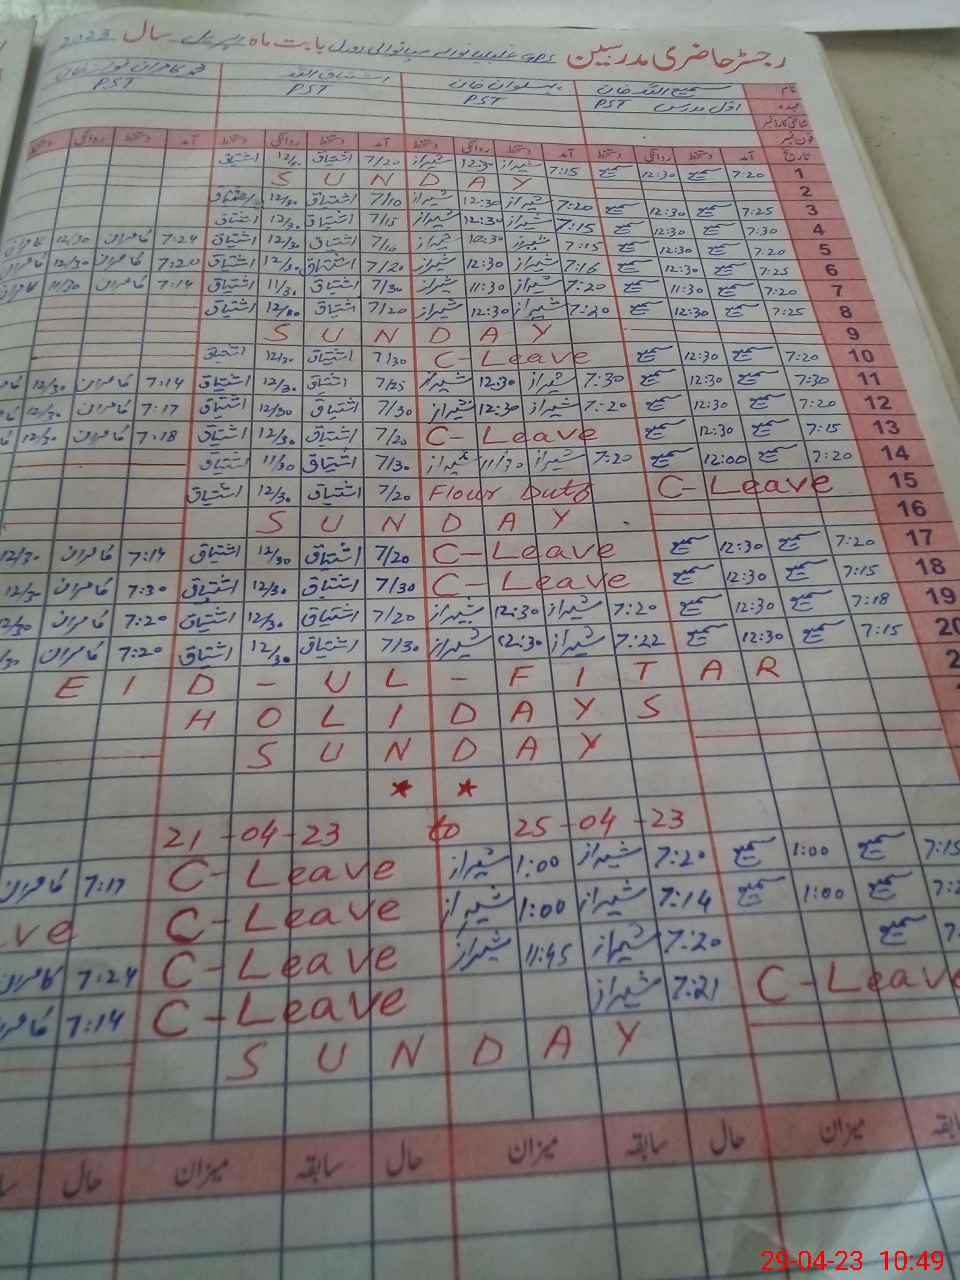 رجسٹر حاضری مدرسین GPS بابت ماہ اپریل سال 2023
نام سمیع اللہ خان پہلوان خان اشتیاق اللہ
عہدہ اول مدرس PST PST PST PST
شناختی کارڈ نمبر
فون نمبر
تاریخ آمد دستخط روانگی دستخط آمد دستخط روانگی دستخط آمد دستخط روانگی دستخط آمد دستخط روانگی دستخط
1 7:20 سمیع 12:30 سمیع 7:15 شیراز 12:30 شیراز 7/20 اشتیاق 12/30 اشتیاق
2 SUNDAY
3 7:25 سمیع 12:30 سمیع 7:20 شیراز 12:30 شیراز 7/10 اشتیاق 12/30 اشتیاق
4 7:30 سمیع 12:30 سمیع 7:15 شیراز 12:30 شیراز 7/15 اشتیاق 12/30 اشتیاق
5 7:20 سمیع 12:30 سمیع 7:15 شیراز 12:30 شیراز 7/10 اشتیاق 12/30 اشتیاق 7:24 کامران 12/30 کامران
6 7:25 سمیع 12:30 سمیع 7:16 شیراز 12:30 شیراز 7/20 اشتیاق 12/30 اشتیاق 7:20 کامران 12/30 کامران
7 7:20 سمیع 11:30 سمیع 7:20 شیراز 11:30 شیراز 7/30 اشتیاق 11/30 اشتیاق 7:14 کامران 11/30 کامران
8 7:25 سمیع 12:30 سمیع 7:20 شیراز 12:30 شیراز 7/20 اشتیاق اشتیاق
9 SUNDAY
10 7:20 سمیع 12:30 سمیع C-Leave 7/30 اشتیاق 12/30 اشتیاق
11 7:30 سمیع 12:30 سمیع 7:30 شیراز 12:30 شیراز 7/25 اشتیاق 12/30 اشتیاق 7:14 کامران 12/30
12 7:20 سمیع 12:30 سمیع 7:20 شیراز 12:30 شیراز 7/30 اشتیاق 12/30 اشتیاق 7:17 کامران 12/30
13 7:15 سمیع 12:30 سمیع C-Leave 7/20 اشتیاق 12/30 اشتیاق 7:18 کامران 12/30
14 7:20 سمیع 12:00 سمیع 7:20 شیراز 11/30 شیراز 7/30 اشتیاق 11/30 اشتیاق
15 C-Leave Flour Duty 7/20 اشتیاق 12/30 اشتیاق
16 SUNDAY
17 7:20 سمیع 12:30 سمیع C-Leave 7/20 اشتیاق 12/30 اشتیاق 7:14 کامران 12/30
18 7:15 سمیع 12:30 سمیع C-Leave 7/30 اشتیاق 12/30 اشتیاق 7:30 کامران 12/30
19 7:18 سمیع 12:30 سمیع 7:20 شیراز 12:30 شیراز 7/20 اشتیاق 12/30 اشتیاق 7:20 کامران 12/30
20 7:15 سمیع 12:30 سمیع 7:22 شیراز 12:30 شیراز 7/30 اشتیاق 12/30 اشتیاق 7:20 کامران
EID-UL-FITAR
HOLIDAYS
SUNDAY
★ ★
21-04-23 to 25-04-23
7:15 سمیع 1:00 سمیع 7:20 شیراز 1:00 شیراز C-Leave 7:17 کامران
سمیع 1:00 سمیع 7:14 شیراز 1:00 شیراز C-Leave
سمیع 7:20 شیراز 11:45 شیراز C-Leave 7:24 کامران
C-Leave 7:21 شیراز C-Leave 7:14 کامران
SUNDAY
سابقہ میزان حال سابقہ میزان حال سابقہ میزان حال
29-04-23 10:49